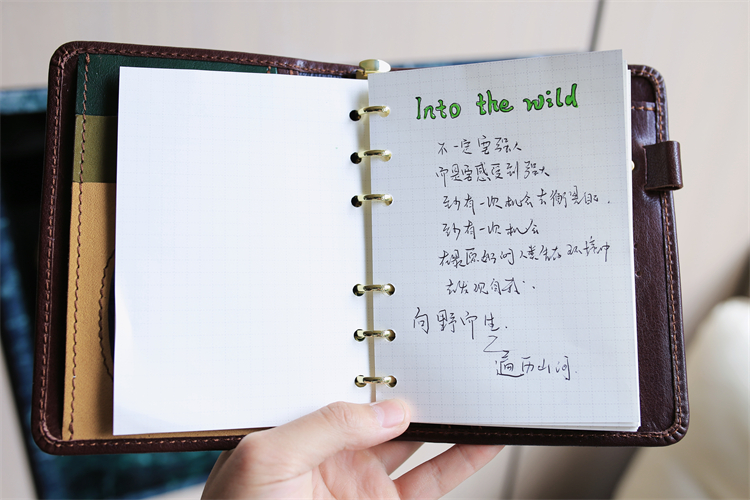 Into the wild
不一定要强大
而是要感受到强大
到有一次机会去衡量自己.
到有一次机会
在最原始的人类生存环境中
去发现自我.
向野而生.
遍历山河.